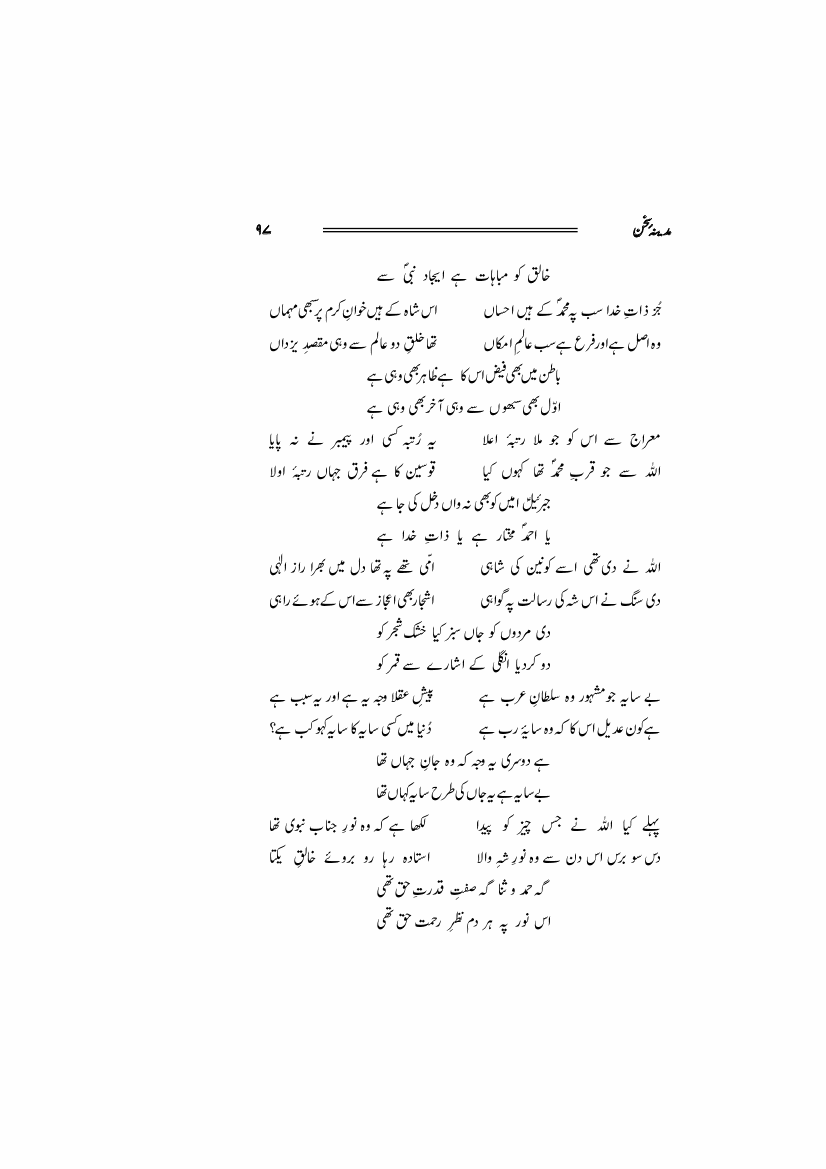 مدینۂ سخن ۹۷
خالق کو مباہات ہے ایجاد نبیؐ سے
جُز ذاتِ خدا سب پہ محمدؐ کے ہیں احساں اس شاہ کے ہیں خوانِ کرم پر سبھی مہماں
وہ اصل ہے اور فرع ہے سب عالمِ امکاں تھا خلقِ دو عالم سے وہی مقصدِ یزداں
باطن میں بھی فیض اس کا ہے ظاہر بھی وہی ہے
اوّل بھی سبھوں سے وہی آخر بھی وہی ہے
معراج سے اس کو جو ملا رتبۂ اعلا یہ رُتبہ کسی اور پیمبر نے نہ پایا
اللہ سے جو قربِ محمدؐ تھا کہوں کیا قوسین کا ہے فرق جہاں رتبۂ اولا
جبرئیلؑ امیں کو بھی نہ واں دخل کی جا ہے
یا احمدؐ مختار ہے یا ذاتِ خدا ہے
اللہ نے دی تھی اسے کونین کی شاہی امّی تھے پہ تھا دل میں بھرا راز الٰہی
دی سنگ نے اس شہ کی رسالت پہ گواہی اشجار بھی اعجاز سے اس کے ہوئے راہی
دی مردوں کو جاں سبز کیا خشک شجر کو
دو کردیا انگلی کے اشارے سے قمر کو
بے سایہ جو مشہور وہ سلطانِ عرب ہے پیشِ عقلا وجہ یہ ہے اور یہ سبب ہے
ہے کون عدیل اس کا کہ وہ سایۂ رب ہے دُنیا میں کسی سایہ کا سایہ کہو کب ہے؟
ہے دوسری یہ وجہ کہ وہ جانِ جہاں تھا
بے سایہ ہے یہ جاں کی طرح سایہ کہاں تھا
پہلے کیا اللہ نے جس چیز کو پیدا لکھا ہے کہ وہ نورِ جناب نبوی تھا
دس سو برس اس دن سے وہ نورِ شہِ والا استادہ رہا رو بروئے خالقِ یکتا
گہ حمد و ثنا گہ صفتِ قدرتِ حق تھی
اس نور پہ ہر دم نظرِ رحمت حق تھی